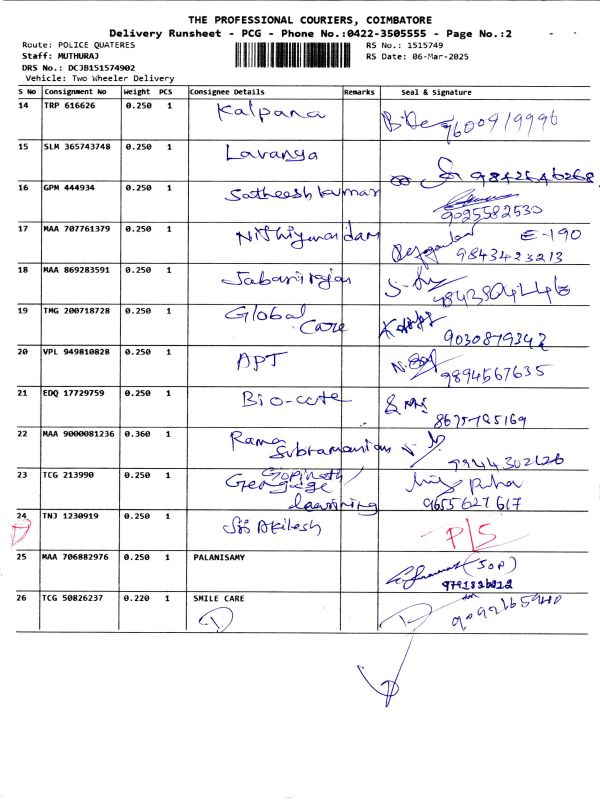 THE PROFESSIONAL COURIERS, COIMBATORE
Delivery Runsheet - PCG - Phone No.:0422-3505555 - Page No.:2
Route: POLICE QUATERES
RS No.: 1515749
Staff: MUTHURAJ
RS Date: 06-Mar-2025
DRS No.: DCJB151574902
Vehicle: Two Wheeler Delivery
S No Consignment No Weight PCS Consignee Details Remarks Seal & Signature
14 TRP 616626 0.250 1 Kalpana 9600919996
15 SLM 365743748 0.250 1 Lavanya 9842646268
16 GPM 444934 0.250 1 Satheesh kumar 9025582530
17 MAA 707761379 0.250 1 Nithiyanandam E-190
9843423213
18 MAA 869283591 0.250 1
19 TMG 200718728 0.250 1 Global
Care 9030879342
20 VPL 949810828 0.250 1 APT 9894567635
21 EDQ 17729759 0.250 1 Bio-cote
22 MAA 9000081236 0.360 1 Rama
Subramanian 9944302126
23 TCG 213990 0.250 1 Gopinath
learning 9655627617
24 TNJ 1230919 0.250 1 Sri Akilesh P/S
25 MAA 706882976 0.250 1 PALANISAMY
26 TCG 50826237 0.220 1 SMILE CARE